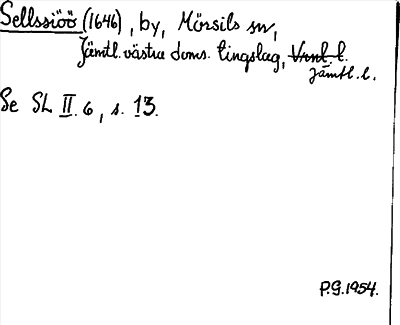 Sellssiöö (1646), by, Mörsils sn,
Jämtl. västra doms. tingslag, Vrml. l.
Jämtl. l.
Se SL II. 6, s. 13.
P.G. 1954.